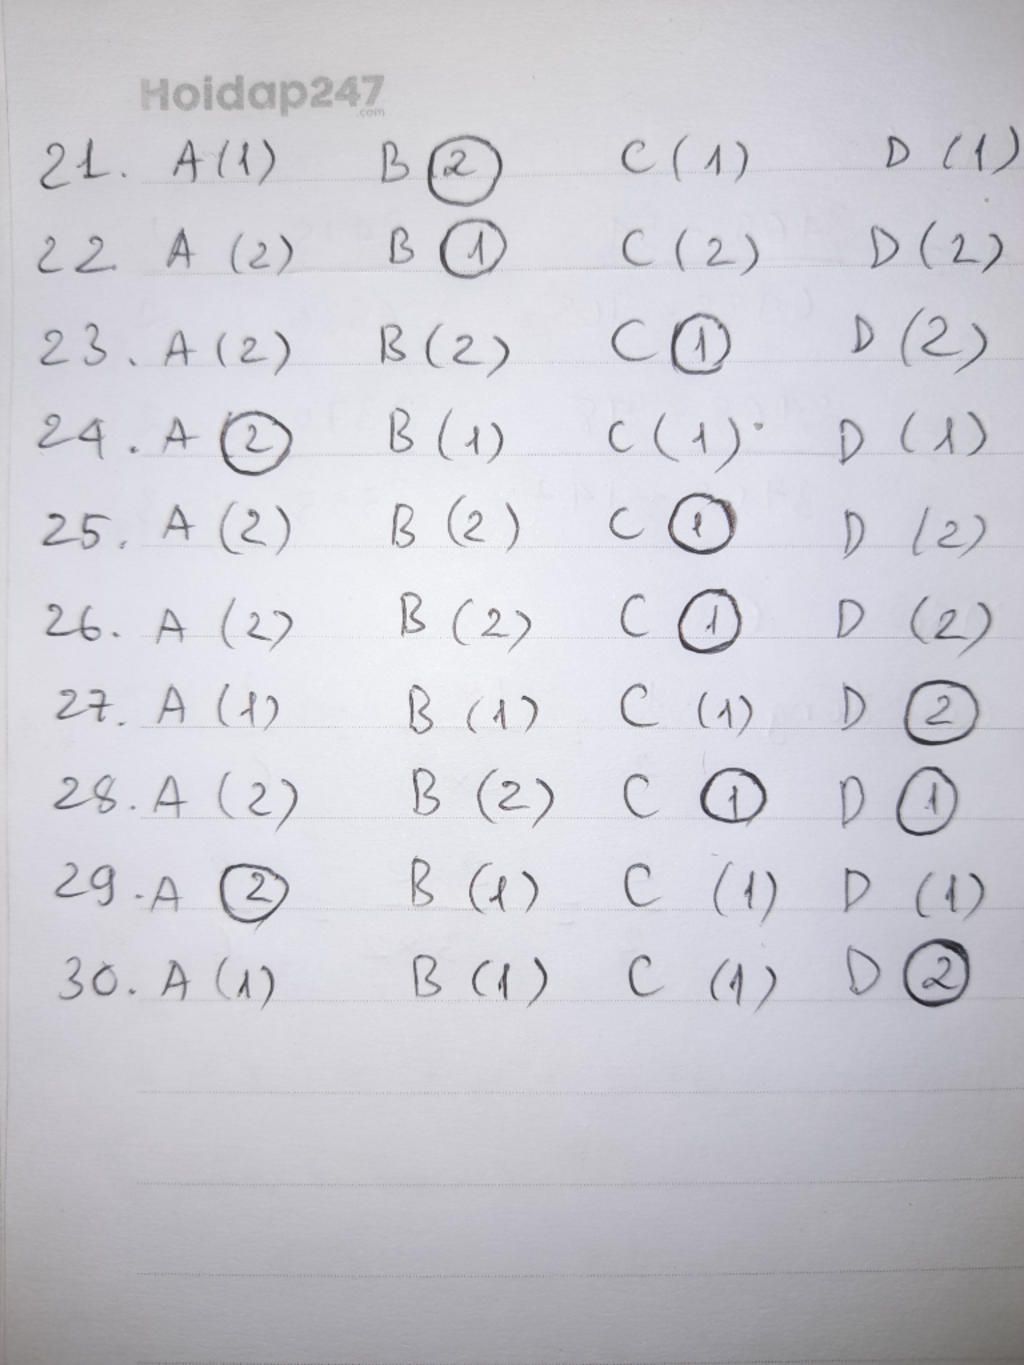 Hoidap247
.com
21. A (1) B (2) C (1) D (1)
22. A (2) B (1) C (2) D (2)
23. A (2) B (2) C (1) D (2)
24. A (2) B (1) C (1) D (1)
25. A (2) B (2) C (1) D (2)
26. A (2) B (2) C (1) D (2)
27. A (1) B (1) C (1) D (2)
28. A (2) B (2) C (1) D (1)
29. A (2) B (1) C (1) D (1)
30. A (1) B (1) C (1) D (2)